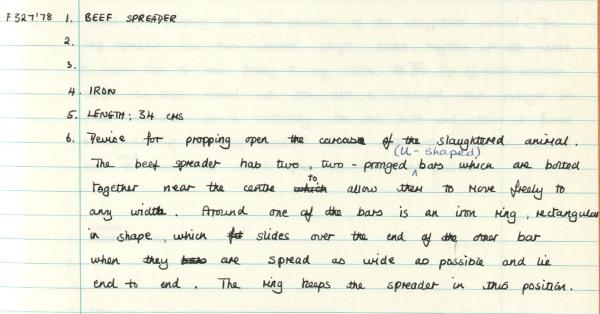 F327'78 1. BEEF SPREADER
2.
3.
4. IRON
5. LENGTH: 34 CMS
6. Device for propping open the carcase of the slaughtered animal.
The beef spreader has two, two-pronged (U-shaped) bars which are bolted
together near the centre to allow them to move freely to
any width. Around one of the bars is an iron ring, rectangular
in shape, which slides over the end of the other bar
when they are spread as wide as possible and lie
end to end. The ring keeps the spreader in this position.